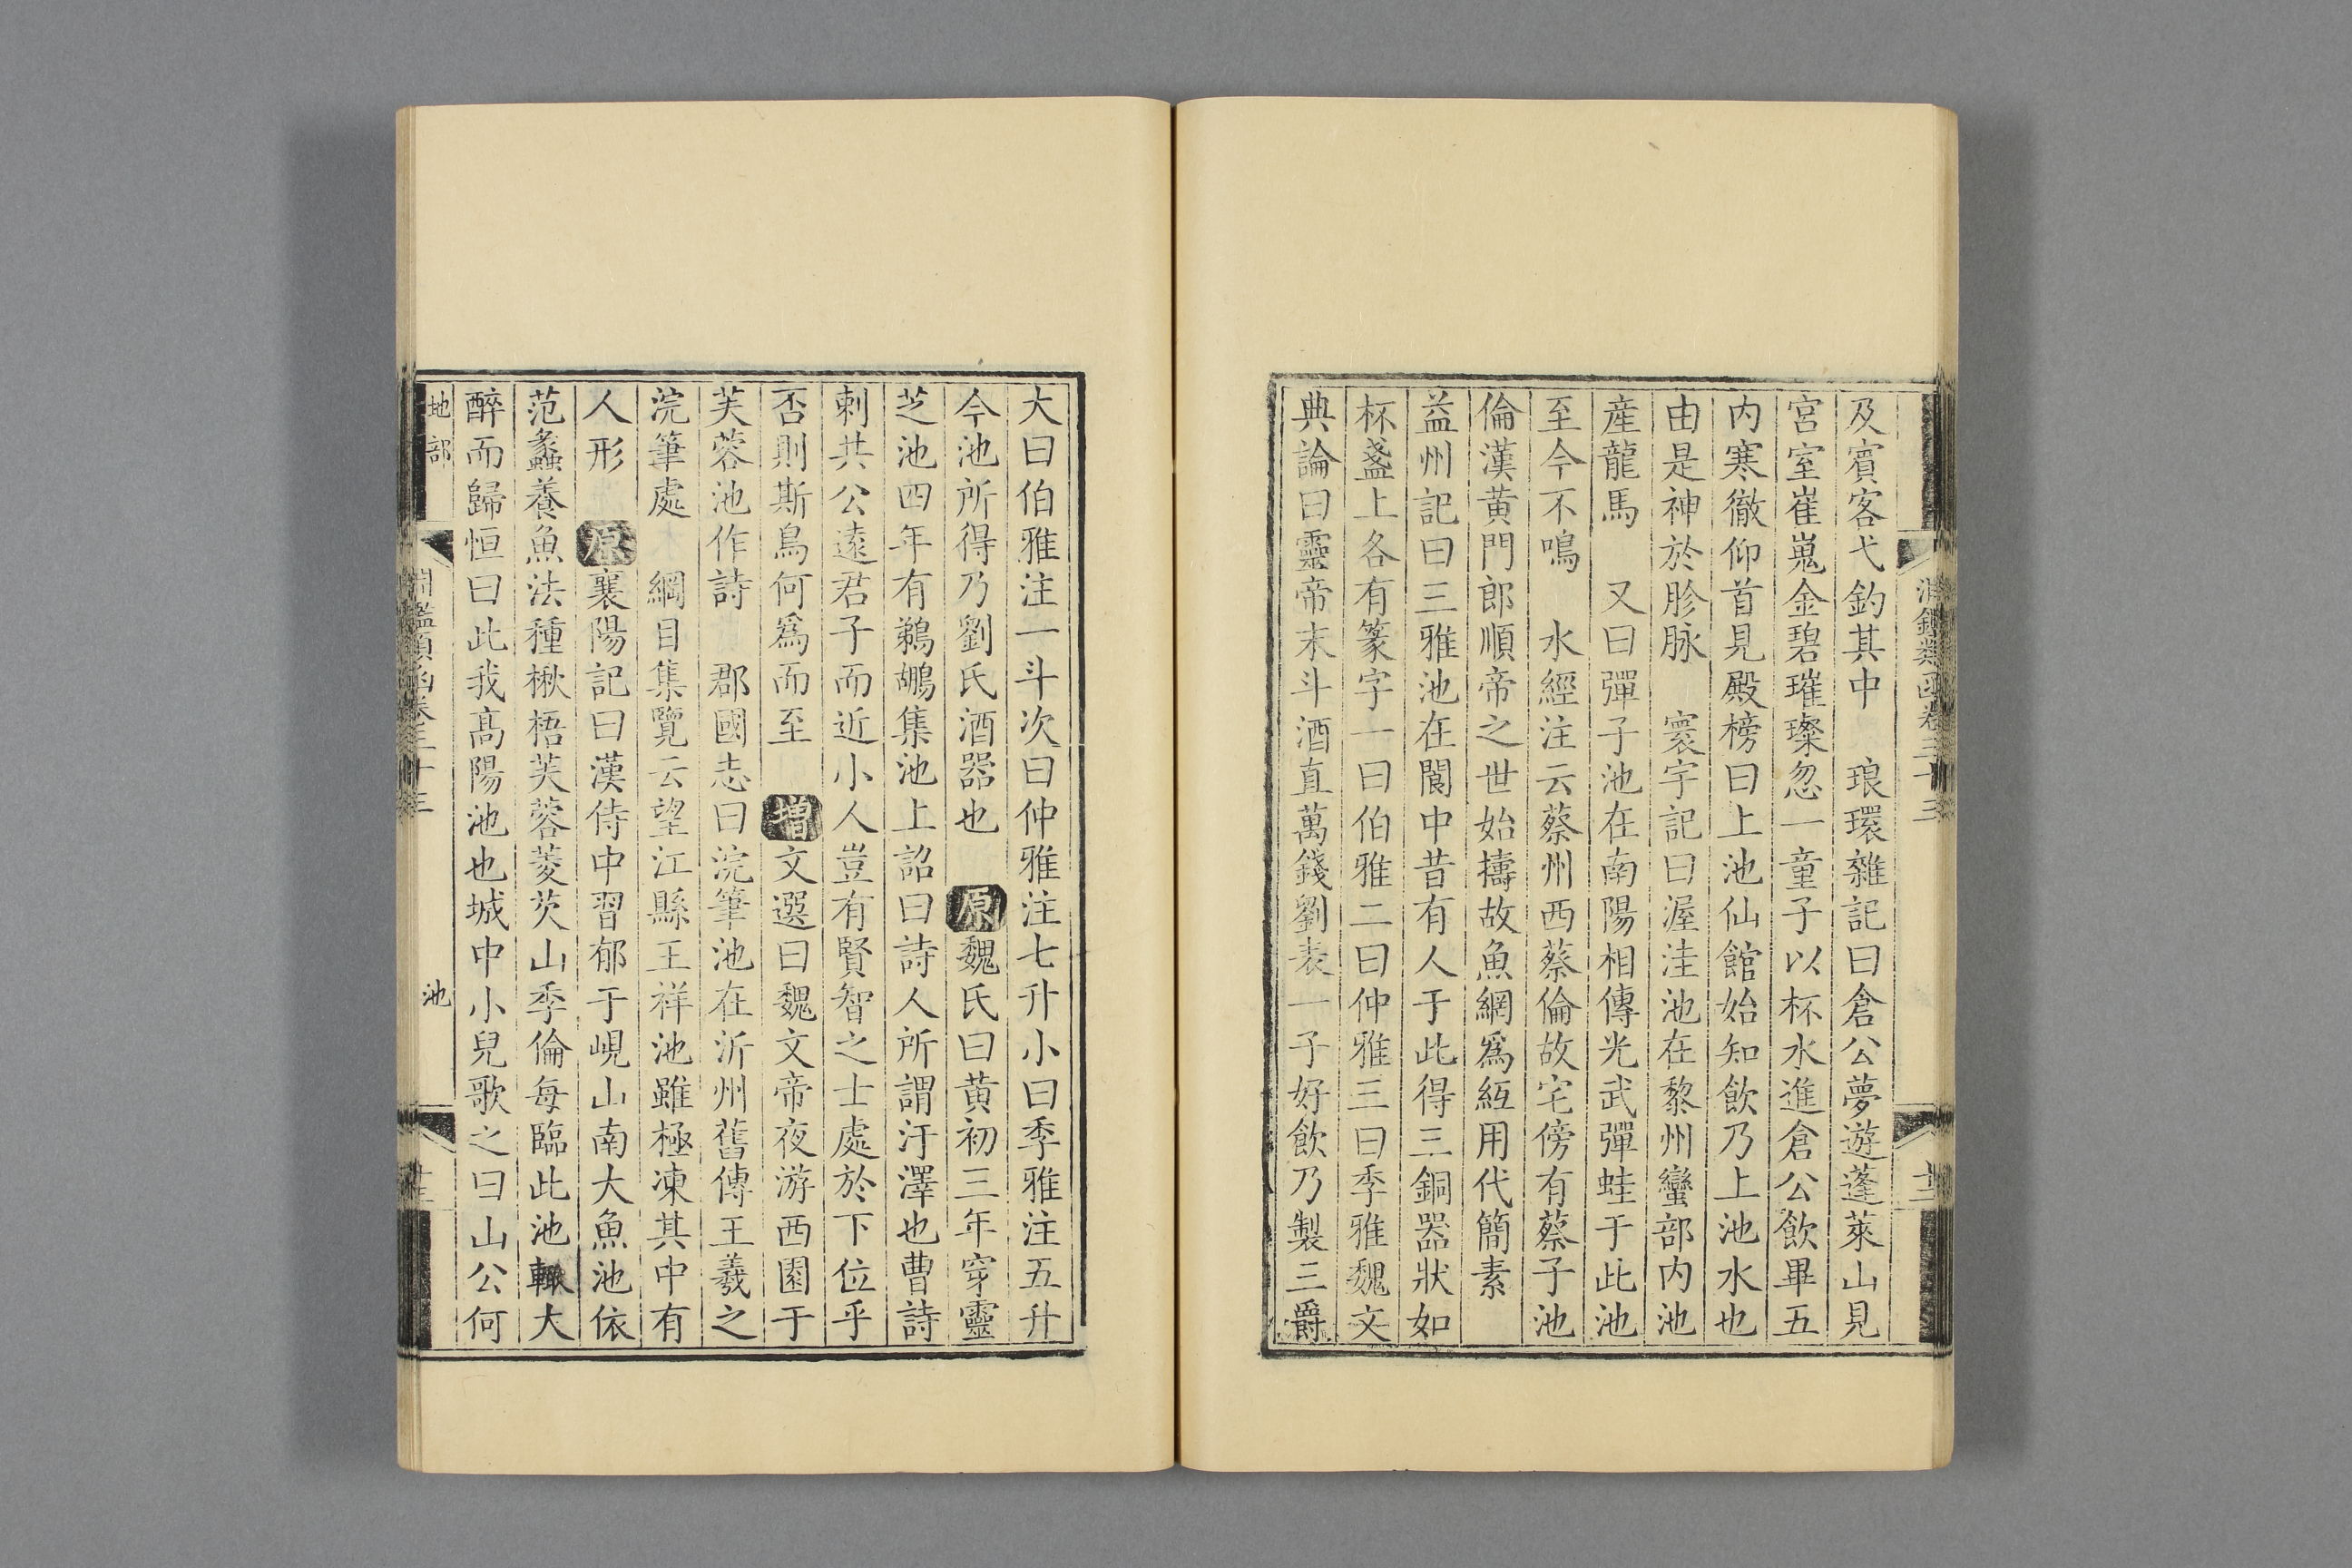 淵鑑類函卷三十三
十二
及賓客弋釣其中　琅環雜記曰倉公夢遊蓬萊山見
宮室崔嵬金碧璀璨忽一童子以杯水進倉公飲畢五
内寒徹仰首見殿榜曰上池仙館始知飲乃上池水也
由是神於胗脉　寰宇記曰渥洼池在黎州蠻部内池
産龍馬　又曰彈子池在南陽相傳光武彈蛙于此池
至今不鳴　水經注云蔡州西蔡倫故宅傍有蔡子池
倫漢黄門郎順帝之世始擣故魚網爲紙用代簡素
益州記曰三雅池在閬中昔有人于此得三銅器狀如
杯盞上各有篆字一曰伯雅二曰仲雅三曰季雅魏文
典論曰靈帝末斗酒直萬錢劉表一子好飲乃製三爵
大曰伯雅注一斗次曰仲雅注七升小曰季雅注五升
今池所得乃劉氏酒器也　原魏氏曰黄初三年穿靈
芝池四年有鵜鶘集池上詔曰詩人所謂汙澤也曹詩
刺共公遠君子而近小人豈有賢智之士處於下位乎
否則斯鳥何爲而至　增文選曰魏文帝夜游西園于
芙蓉池作詩　郡國志曰浣筆池在沂州舊傳王羲之
浣筆處　綱目集覽云望江縣王祥池雖極凍其中有
人形　原襄陽記曰漢侍中習郁于峴山南大魚池依
范蠡養魚法種楸梧芙蓉菱芡山季倫每臨此池輒大
醉而歸恒曰此我髙陽池也城中小兒歌之曰山公何
地部
淵鑑類函卷三十三
池
十三